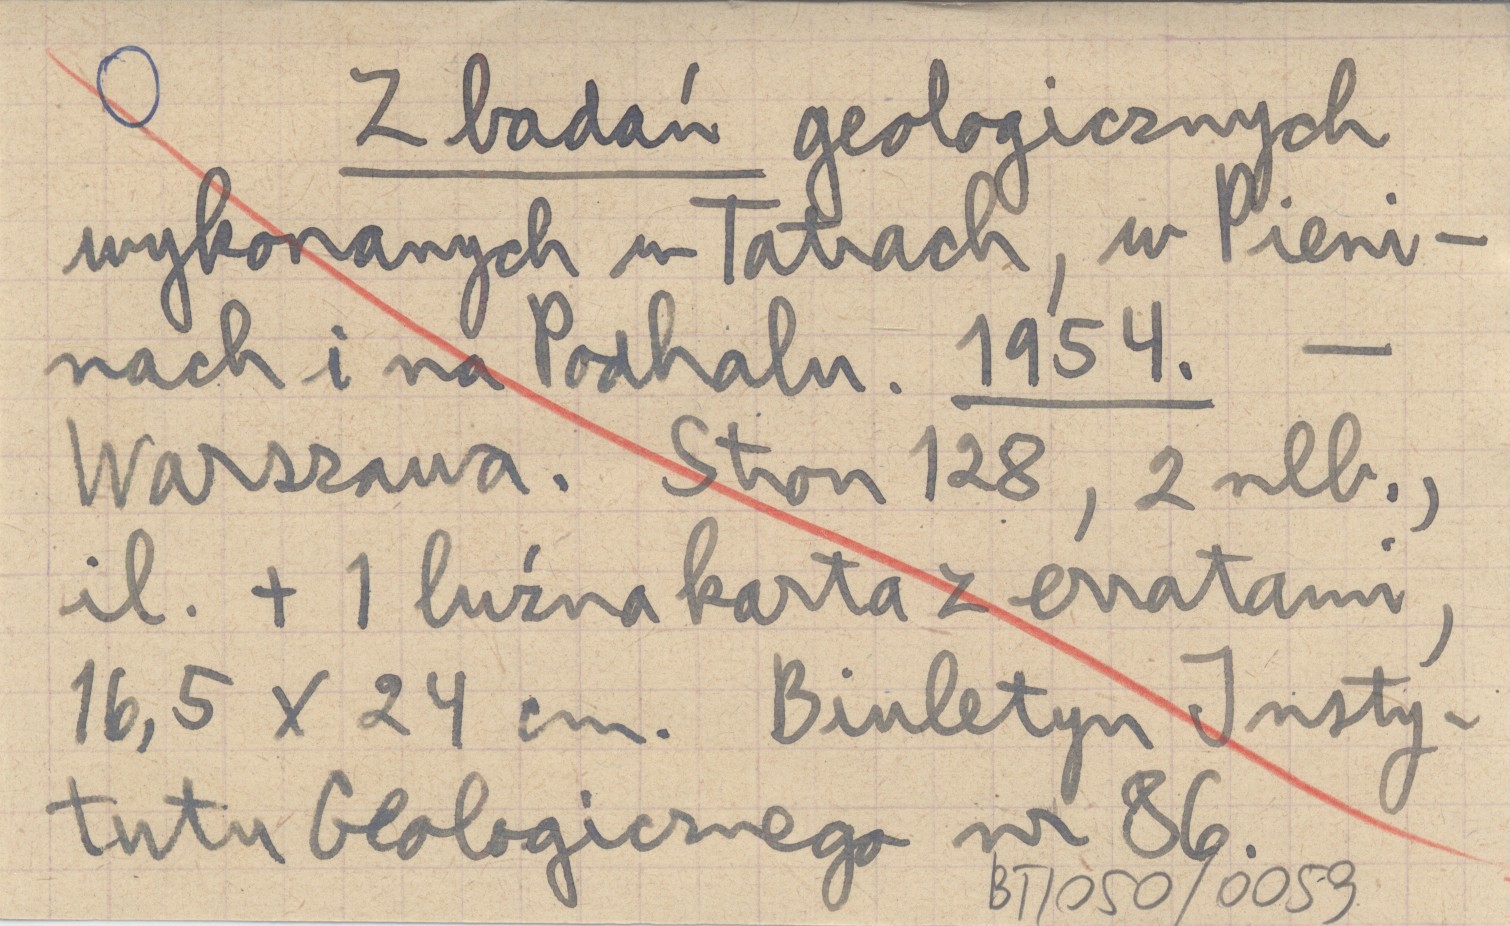 Z badań geologicznych
wykonanych w Tatrach, w Pieni-
nach i na Podhalu. 1954. —
Warszawa. Stron 128, 2 nlb.,
il. + 1 luźna karta z erratami,
16,5 x 24 cm. Biuletyn Insty-
tutu Geologicznego nr 86.
BT/050/0059